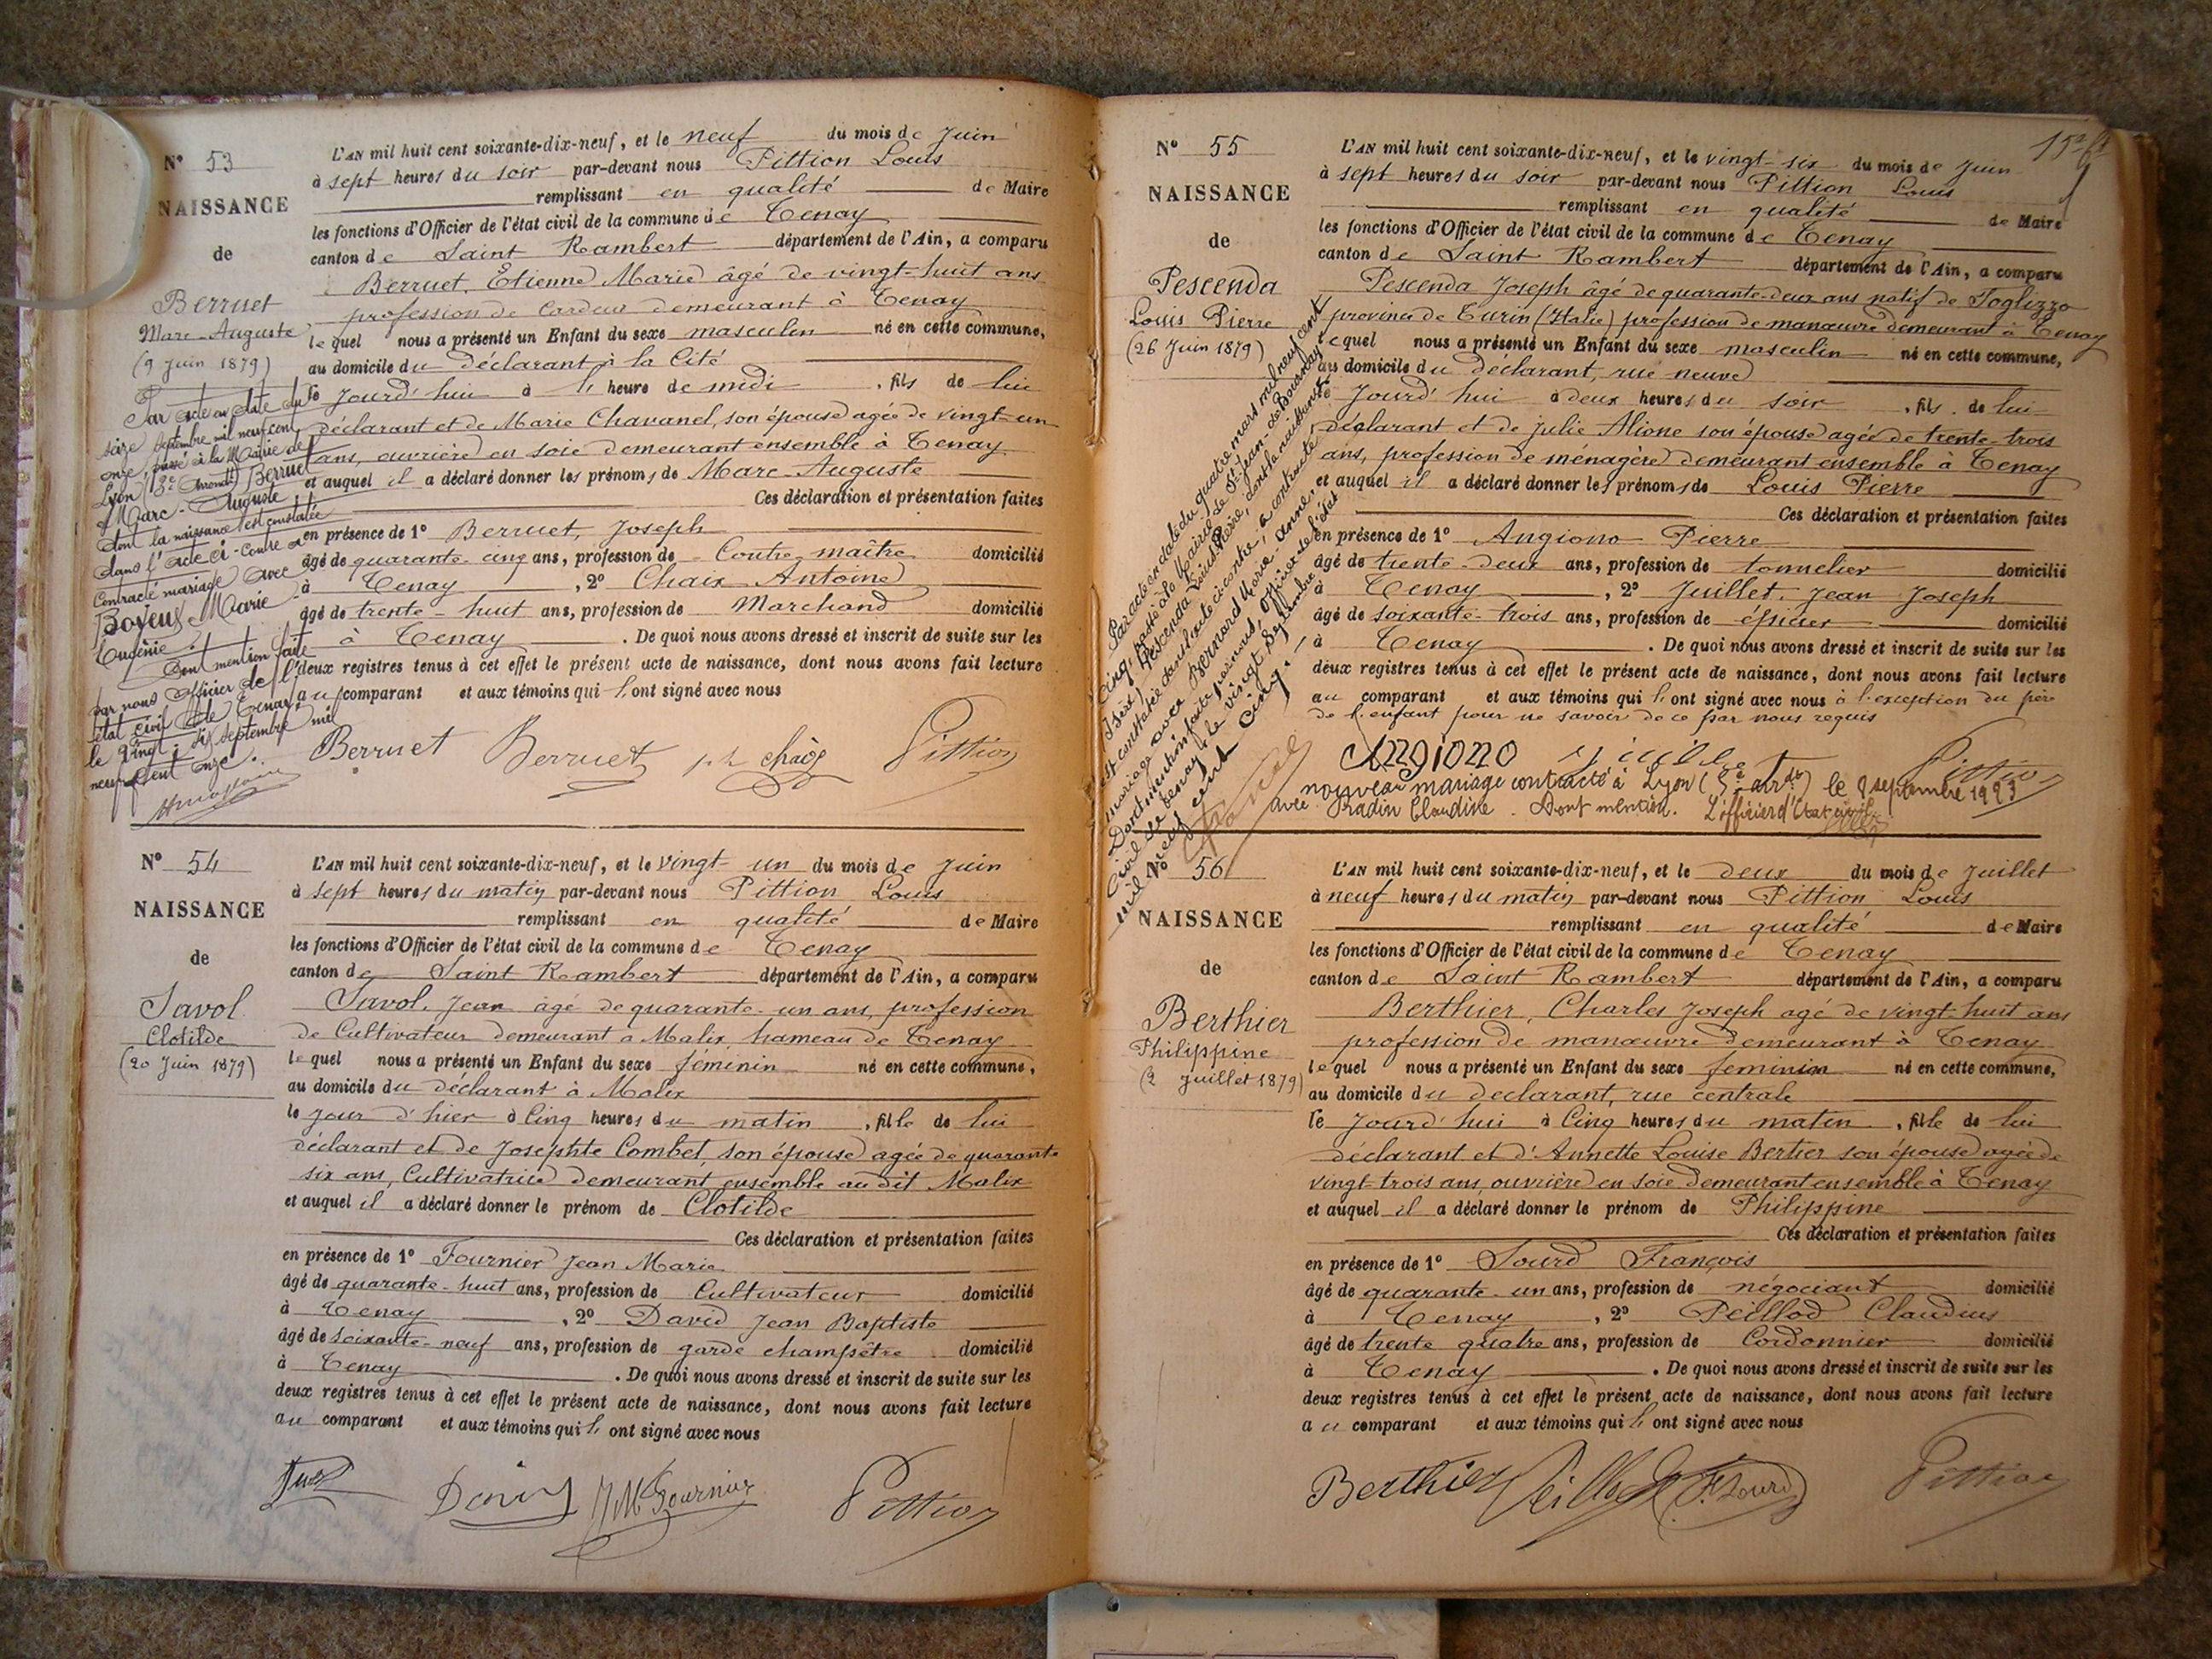 N° 53
NAISSANCE
de
Berruet
Marc-Auguste
(9 Juin 1879)
Par acte en date du
seize septembre mil neuf cent
onze, passé à la Mairie de
Lyon (3e Arrondt) Berruet
Marc-Auguste
dont la naissance est constatée
dans l'acte ci-contre a
Contracté mariage avec
Boyeux Marie
Eugénie
Dont mention faite
par nous Officier de l'
état civil de Tenay
le vingt-six septembre mil
neuf cent onze.
L'AN mil huit cent soixante-dix-neuf, et le neuf du mois de Juin
à sept heures du soir par-devant nous Pittion Louis
remplissant en qualité de Maire
les fonctions d'Officier de l'état civil de la commune de Tenay
canton de Saint Rambert département de l'Ain, a comparu
Berruet, Etienne Marie âgé de vingt-huit ans
profession de Cardeur demeurant à Tenay
lequel nous a présenté un Enfant du sexe masculin né en cette commune,
au domicile du déclarant à la Cité
le Jourd'hui à heure de midi, fils de lui
déclarant et de Marie Chavanel, son épouse agée de vingt-un
ans, ouvrière en soie demeurant ensemble à Tenay
et auquel il a déclaré donner les prénoms de Marc-Auguste
Ces déclaration et présentation faites
en présence de 1° Berruet, Joseph
âgé de quarante-cinq ans, profession de Contre-maître domicilié
à Tenay, 2° Chaix Antoine
âgé de trente-huit ans, profession de Marchand domicilié
à Tenay. De quoi nous avons dressé et inscrit de suite sur les
deux registres tenus à cet effet le présent acte de naissance, dont nous avons fait lecture
au comparant et aux témoins qui l'ont signé avec nous
Berruet Berruet chaix Pittion
N° 54
NAISSANCE
de
Savol
Clotilde
(20 Juin 1879)
L'AN mil huit cent soixante-dix-neuf, et le vingt-un du mois de Juin
à sept heures du matin par-devant nous Pittion Louis
remplissant en qualité de Maire
les fonctions d'Officier de l'état civil de la commune de Tenay
canton de Saint Rambert département de l'Ain, a comparu
Savol, Jean âgé de quarante-un ans, profession
de Cultivateur demeurant à Malix, hameau de Tenay
lequel nous a présenté un Enfant du sexe féminin né en cette commune,
au domicile du déclarant à Malix
le jour d'hier à Cinq heures du matin, fille de lui
déclarant et de Josephte Combet, son épouse agée de quarante
six ans, Cultivatrice demeurant ensemble audit Malix
et auquel il a déclaré donner le prénom de Clotilde
Ces déclaration et présentation faites
en présence de 1° Fournier Jean Marie
âgé de quarante-huit ans, profession de Cultivateur domicilié
à Tenay, 2° David Jean Baptiste
âgé de soixante-neuf ans, profession de garde champêtre domicilié
à Tenay. De quoi nous avons dressé et inscrit de suite sur les
deux registres tenus à cet effet le présent acte de naissance, dont nous avons fait lecture
au comparant et aux témoins qui l'ont signé avec nous
JM Fournier Pittion
N° 55
NAISSANCE
de
Pescenda
Louis Pierre
(26 Juin 1879)
Par acte en date du quatre mars mil neuf cent
cinq, passé à la Mairie de St-Jean-de-Bournay
(Isère), Pescenda Louis Pierre, dont la naissance
est constatée dans l'acte ci-contre, a contracté
mariage avec Bernard Marie-Anne.
Dont mention faite par nous, Officier de l'état
civil de Tenay, le vingt Septembre
mil neuf cent cinq.
L'AN mil huit cent soixante-dix-neuf, et le vingt-six du mois de Juin
à sept heures du soir par-devant nous Pittion Louis
remplissant en qualité de Maire
les fonctions d'Officier de l'état civil de la commune de Tenay
canton de Saint Rambert département de l'Ain, a comparu
Pescenda Joseph âgé de quarante-deux ans natif de Foglizzo
province de Turin (Italie) profession de manœuvre demeurant à Tenay
lequel nous a présenté un Enfant du sexe masculin né en cette commune,
au domicile du déclarant, rue neuve
le Jourd'hui à deux heures du soir, fils de lui
déclarant et de Julie Alione son épouse agée de trente-trois
ans, profession de ménagère demeurant ensemble à Tenay
et auquel il a déclaré donner les prénoms de Louis Pierre
Ces déclaration et présentation faites
en présence de 1° Angiono Pierre
âgé de trente-deux ans, profession de tonnelier domicilié
à Tenay, 2° Juillet, Jean Joseph
âgé de soixante-trois ans, profession de épicier domicilié
à Tenay. De quoi nous avons dressé et inscrit de suite sur les
deux registres tenus à cet effet le présent acte de naissance, dont nous avons fait lecture
au comparant et aux témoins qui l'ont signé avec nous à l'exception du père
de l'enfant pour ne savoir de ce par nous requis
Angiono Pittion
nouveau mariage contracté à Lyon (5e arrdt) le 8 septembre 1923
avec Pradin Claudine. Dont mention. L'officier d'état civil
N° 56
NAISSANCE
de
Berthier
Philippine
(2 Juillet 1879)
L'AN mil huit cent soixante-dix-neuf, et le deux du mois de Juillet
à neuf heures du matin par-devant nous Pittion Louis
remplissant en qualité de Maire
les fonctions d'Officier de l'état civil de la commune de Tenay
canton de Saint Rambert département de l'Ain, a comparu
Berthier, Charles Joseph agé de vingt-huit ans
profession de manœuvre demeurant à Tenay
lequel nous a présenté un Enfant du sexe feminin né en cette commune,
au domicile du declarant, rue centrale
le Jourd'hui à Cinq heures du maten, fille de lui
déclarant et d'Annette Louise Bertier son épouse agée de
vingt-trois ans, ouvrière en soie demeurant ensemble à Tenay
et auquel il a déclaré donner le prénom de Philippine
Ces déclaration et présentation faites
en présence de 1° Sourd François
âgé de quarante-un ans, profession de négociant domicilié
à Tenay, 2° Peillod Claudius
âgé de trente quatre ans, profession de Cordonnier domicilié
à Tenay. De quoi nous avons dressé et inscrit de suite sur les
deux registres tenus à cet effet le présent acte de naissance, dont nous avons fait lecture
au comparant et aux témoins qui l'ont signé avec nous
Berthier Peillod F. Sourd Pittion